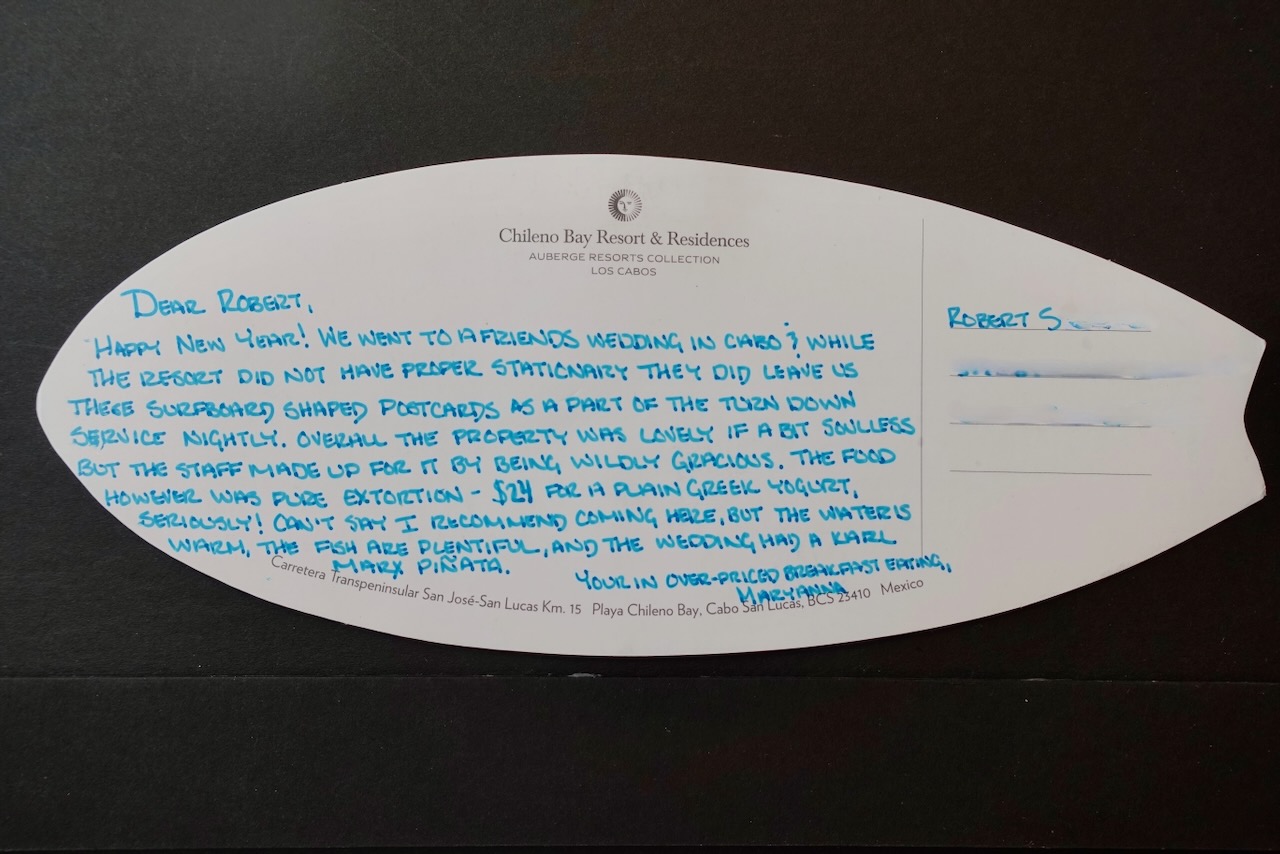 Chileno Bay Resort & Residences
AUBERGE RESORTS COLLECTION
LOS CABOS
DEAR ROBERT,
HAPPY NEW YEAR! WE WENT TO A FRIENDS WEDDING IN CABO & WHILE
THE RESORT DID NOT HAVE PROPER STATIONARY THEY DID LEAVE US
THESE SURFBOARD SHAPED POSTCARDS AS A PART OF THE TURN DOWN
SERVICE NIGHTLY. OVERALL THE PROPERTY WAS LOVELY IF A BIT SOULLESS
BUT THE STAFF MADE UP FOR IT BY BEING WILDLY GRACIOUS. THE FOOD
HOWEVER WAS PURE EXTORTION - $24 FOR A PLAIN GREEK YOGURT,
SERIOUSLY! CAN'T SAY I RECOMMEND COMING HERE, BUT THE WATER IS
WARM, THE FISH ARE PLENTIFUL, AND THE WEDDING HAD A KARL
MARX PIÑATA.
YOUR IN OVER-PRICED BREAKFAST EATING,
MARYANNA
Carretera Transpeninsular San José-San Lucas Km. 15 Playa Chileno Bay, Cabo San Lucas, BCS 23410 Mexico
ROBERT S